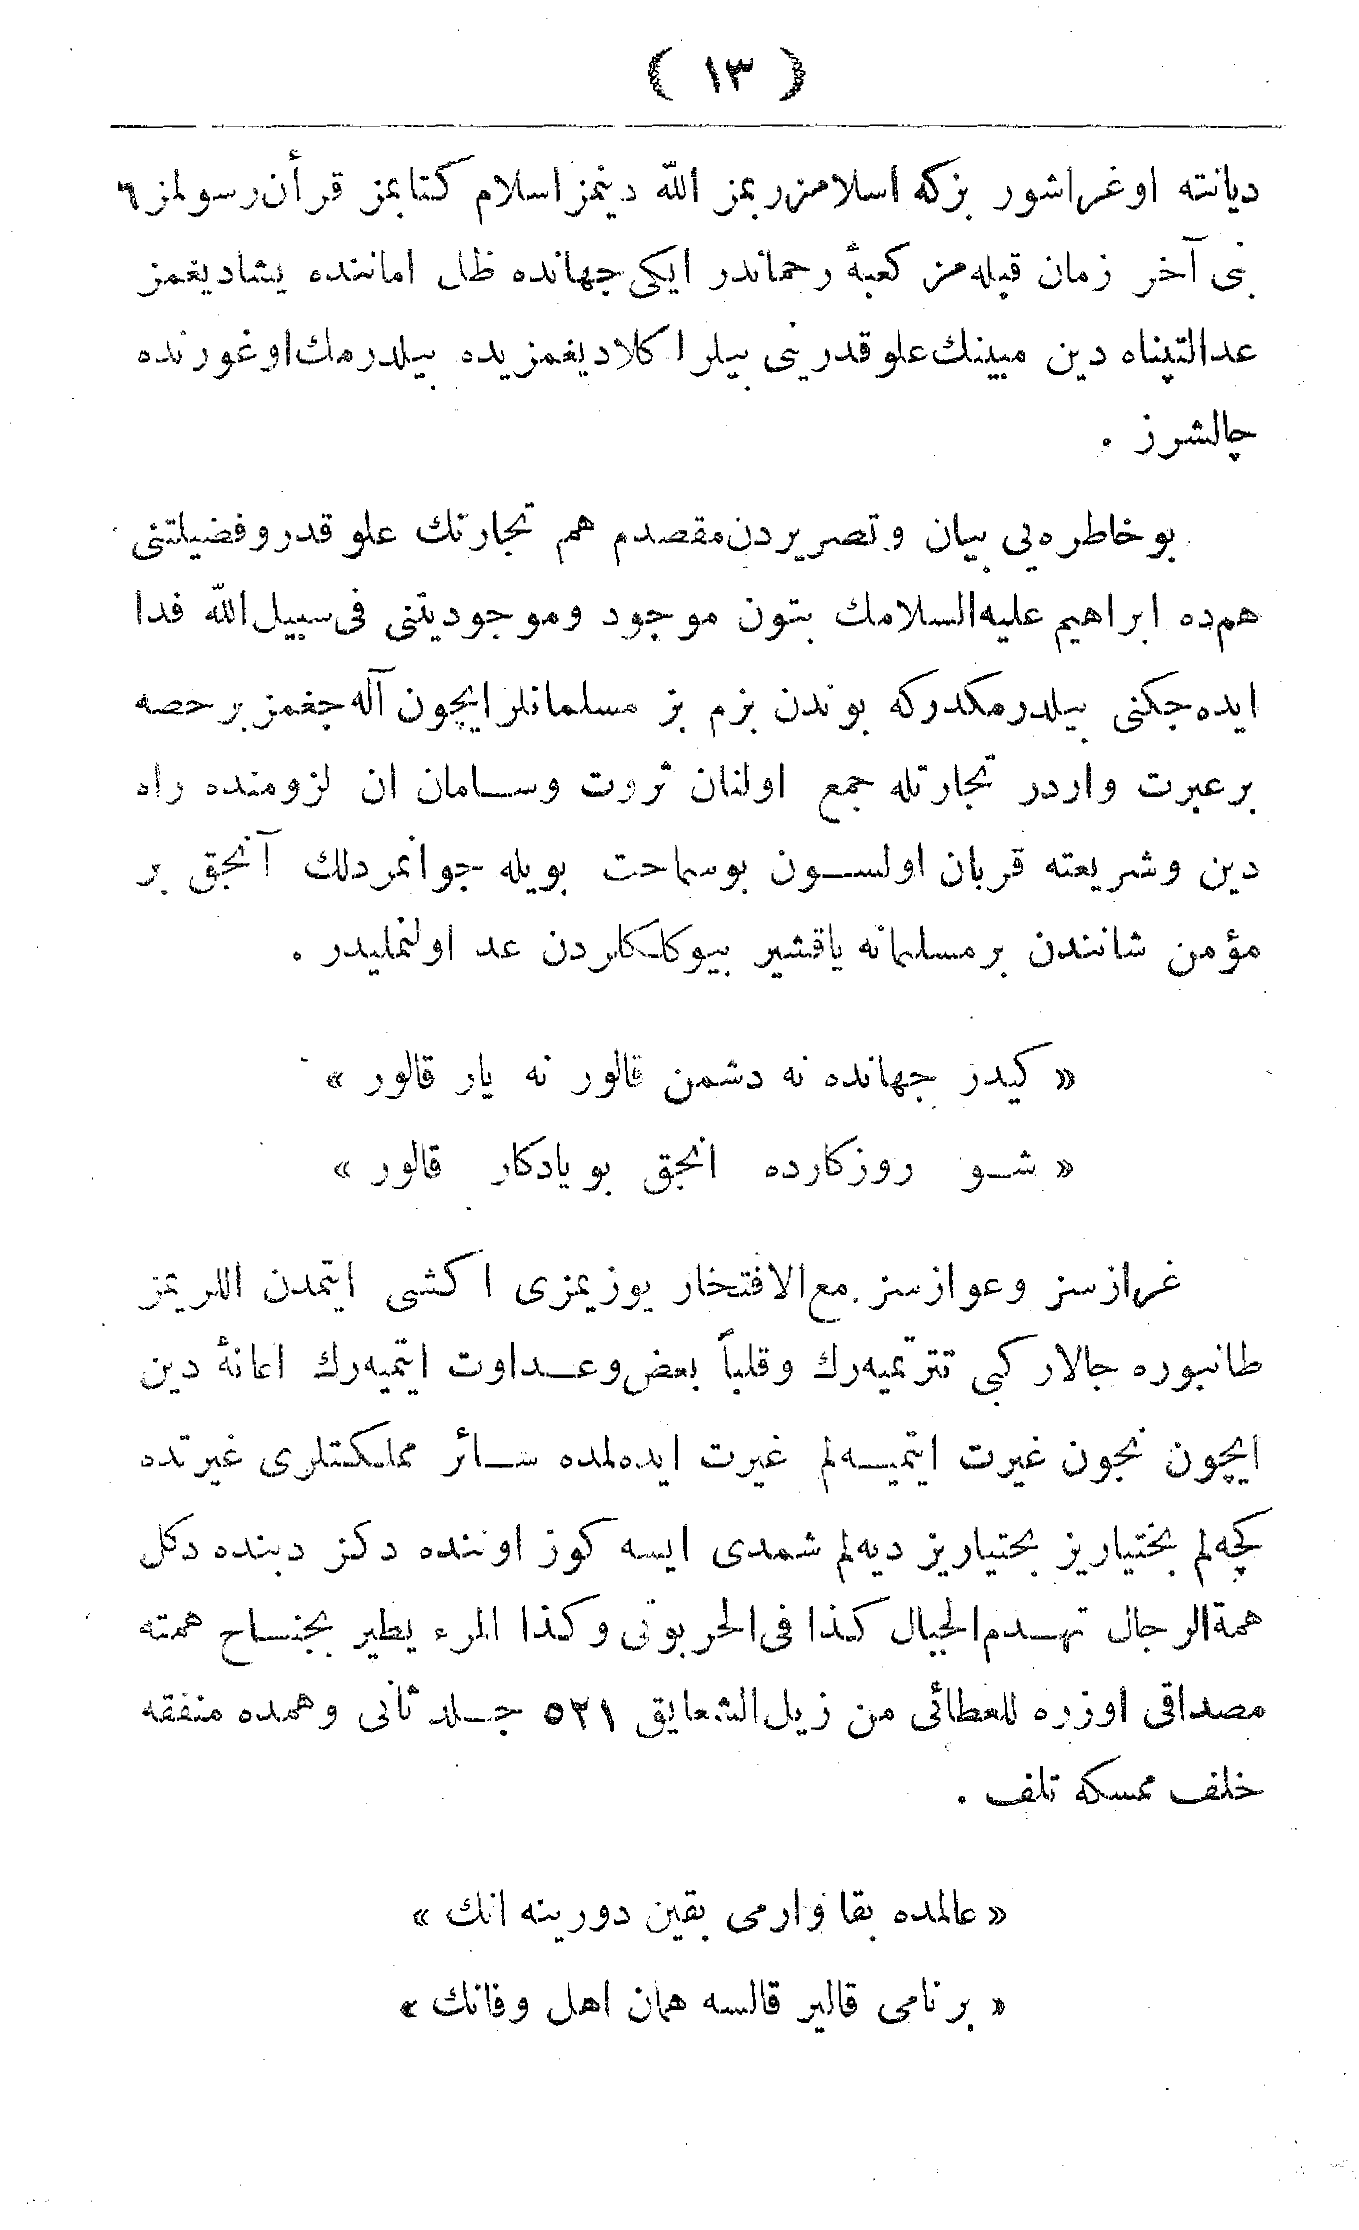 ( ١٣ )
ديانته اوغراشور بزكه اسلامز ربمز الله دينمز اسلام كتابمز قرأن رسولمز ٦
نبى آخر زمان قبله‌مز كعبهٔ رحماندر ايكى جهانده ظل اماننده يشاديغمز
عدالتپناه دين مبينك علو قدرينى بيلر ا كلاديغمزيده بيلدرمك اوغورنده
چالشرز .
بو خاطره‌يى بيان و تصريردن مقصدم هم تجارتك علو قدر و فضيلتنى
هم‌ده ابراهيم عليه‌السلامك بتون موجود و موجوديتنى فى سبيل‌الله فدا
ايده‌جكنى بيلدرمكدركه بوندن بزم بز مسلمانلر ايچون آله‌جغمز بر حصه
بر عبرت واردر تجارتله جمع اولنان ثروت وسامان ان لزومنده راه
دين و شريعته قربان اولسون بو سماحت بويله جوانمردلك آنجق بر
مؤمن شانندن بر مسلمانه ياقشير بيوكلكلردن عد اولنمليدر .
« كيدر جهانده نه دشمن قالور نه يار قالور »
« شو روزكارده انجق بو يادكار قالور »
غرازسز وعوازسز مع‌الافتخار يوزيمزى ا كشى ايتمدن اللريمز
طانبوره جالار كبى تترتميه‌رك وقلباً بعض وعداوت ايتميه‌رك اعانهٔ دين
ايچون نجون غيرت ايتميه‌لم غيرت ايده‌لمده سائر مملكتلرى غيرتده
كچه‌لم بختياريز بختياريز ديه‌لم شمدى ايسه كوز اوننده دكز دبنده دكل
همة‌الرجال تهدم‌الجبال كذا فى‌الخربوتى وكذا المرء يطير بجناح همته
مصداقى اوزره للعطائى من زيل‌الشعايق ٥٢١ جلد ثانى وهمده منفقه
خلف ممسكه تلف .
« عالمده بقا وارمى بقين دورينه انك »
« بر نامى قالير قالسه همان اهل وفانك »